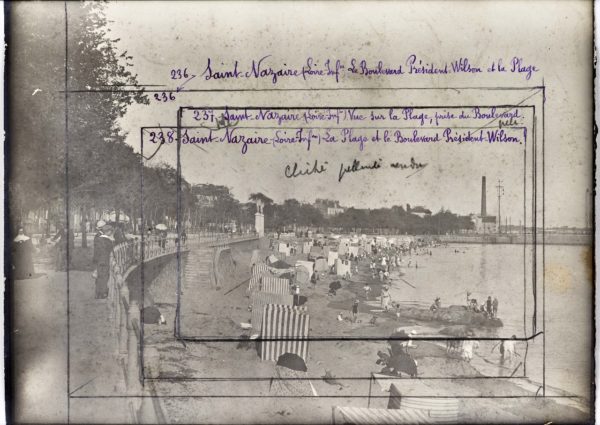 236- Saint-Nazaire (Loire-Infre) Le Boulevard Président-Wilson et la Plage
236
237- Saint-Nazaire (Loire-Infre) Vue sur la Plage, prise du Boulevard.
238- Saint-Nazaire (Loire-Infre) - La Plage et le Boulevard Président-Wilson.
Cliché